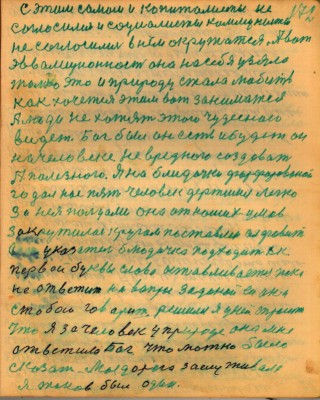 172
С этим самом и копиталисты не
согласился и социалисты комедният
не согласился в нём окружатся. А вот
эвалиционност она на себя узяла
только это и природу стала любит
как хочется этим вот заниматся
А люди не хотят этого чудесного
видет. Бог был он есть и будет он
на человеке не вредного создоват
А полезного. Я на блюдочке фарфоровой
годал нос пят человек держимся легко
За нея ползали она от наших умов
Закрутилас кругом поставлено алфавит
указател блюдочка подходит к
первой буквы слово оставливается пока
не ответит на вопрос заданой ей она
с тобой говорит. решили я у ней спросит
что я за человек у природе она мне
ответила Бог что можно было
сказат. Мы дорого заслуживали
я таков был один.